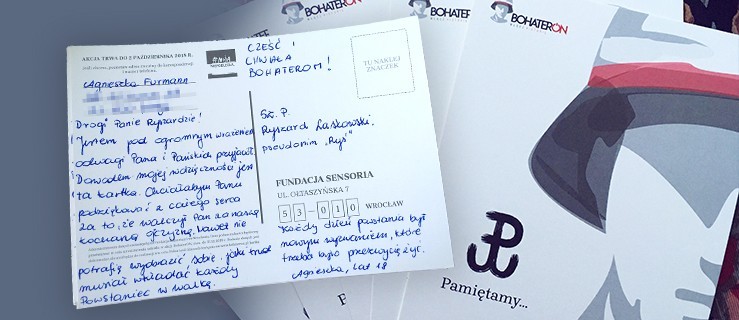 BOHATERON
BOHATER
BOHATERON
AKCJA TRWA DO 2 PAŹDZIERNIKA 2018 R.
Agnieszka Furmann
Drogi Panie Ryszardzie!
Jestem pod ogromnym wrażeniem
odwagi Pana i Pańskich przyjaciół.
Dowodem mojej wdzięczności jest
ta kartka. Chciałabym Panu
podziękować z całego serca
za to, że walczył Pan za naszą
kochaną ojczyznę. Nawet nie
potrafię wyobrazić sobie, jaki trud
musiał wkładać każdy
Powstaniec w walkę.
CZEŚĆ I
CHWAŁA
BOHATEROM!
TU NAKLEJ
ZNACZEK
Sz. P.
Ryszard Laskowski,
pseudonim „Ryś"
FUNDACJA SENSORIA
UL. OŁTASZYŃSKA 7
53-010 WROCŁAW
Każdy dzień powstania był
nowym wyzwaniem, które
trzeba było przezwyciężyć.
Agnieszka, lat 18
P
Pamiętamy...